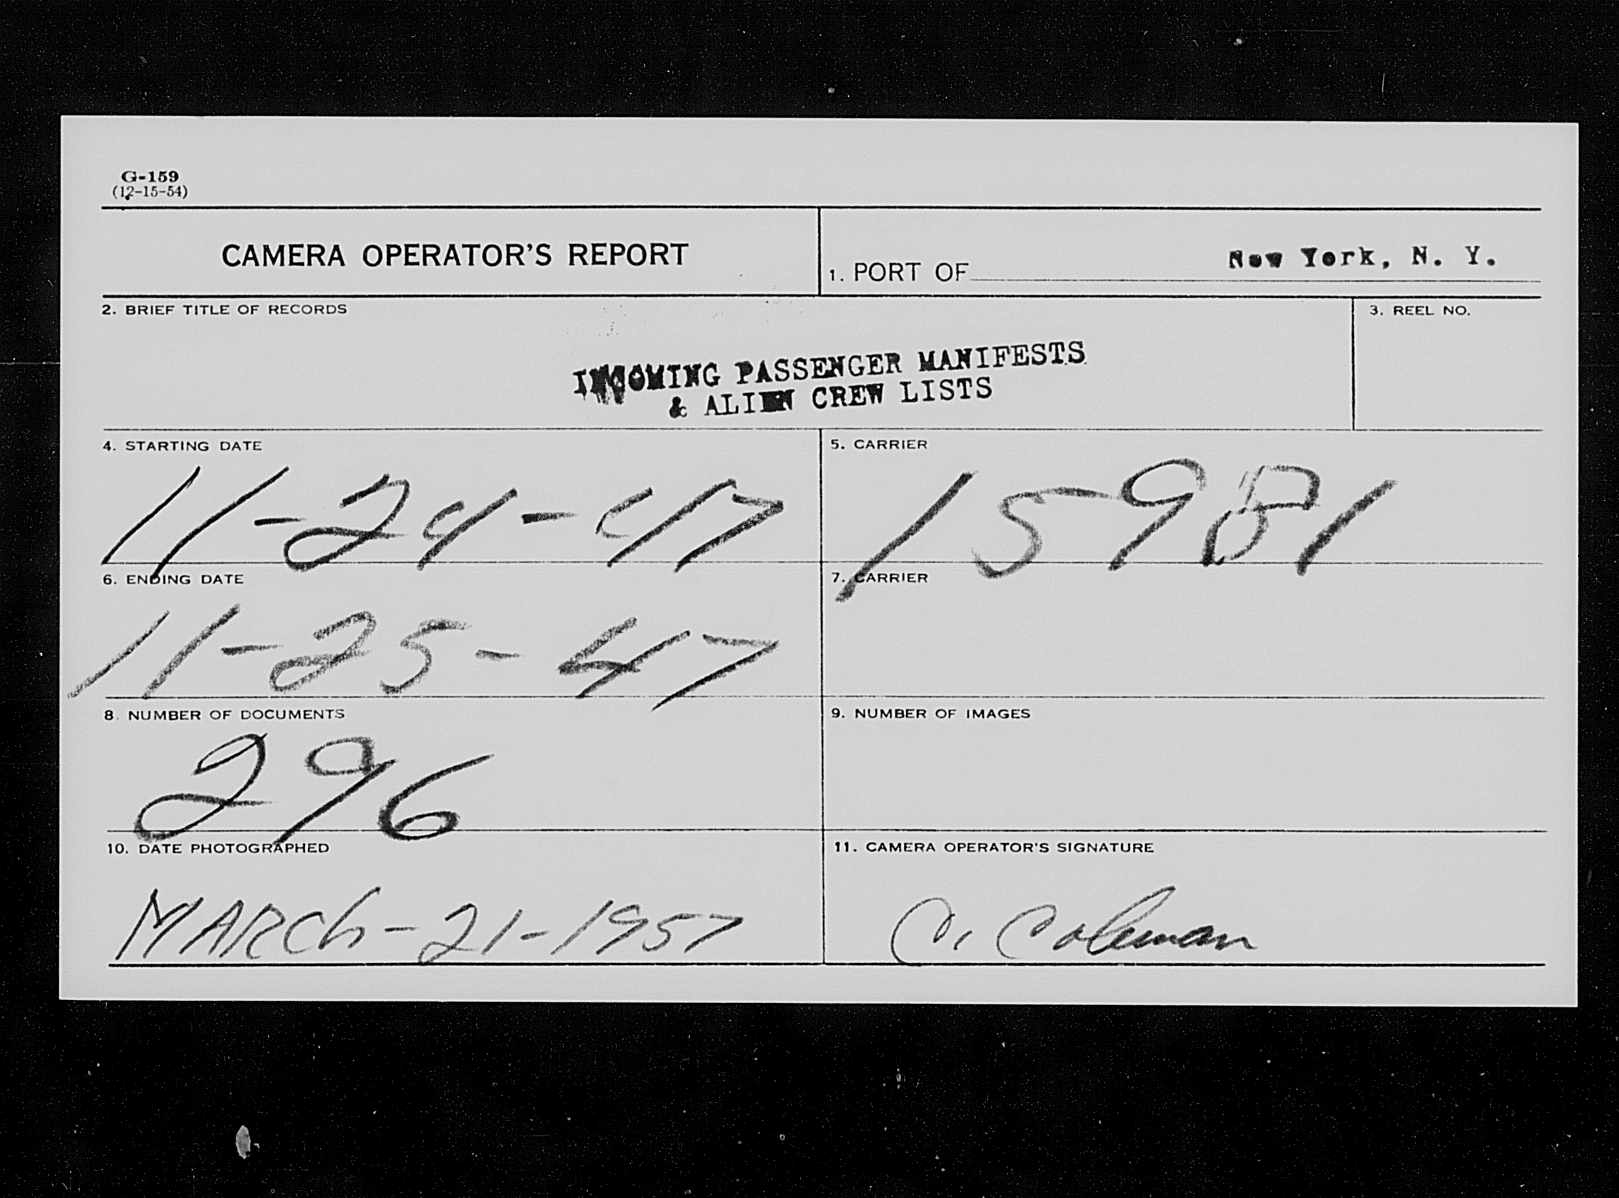 G-159
(12-15-54)
CAMERA OPERATOR'S REPORT
1. PORT OF New York, N. Y.
2. BRIEF TITLE OF RECORDS
3. REEL NO.
INCOMING PASSENGER MANIFESTS
& ALIEN CREW LISTS
4. STARTING DATE
5. CARRIER
11-24-47
15981
6. ENDING DATE
7. CARRIER
11-25-47
8. NUMBER OF DOCUMENTS
9. NUMBER OF IMAGES
296
10. DATE PHOTOGRAPHED
11. CAMERA OPERATOR'S SIGNATURE
MARCh-21-1957
C. Coleman